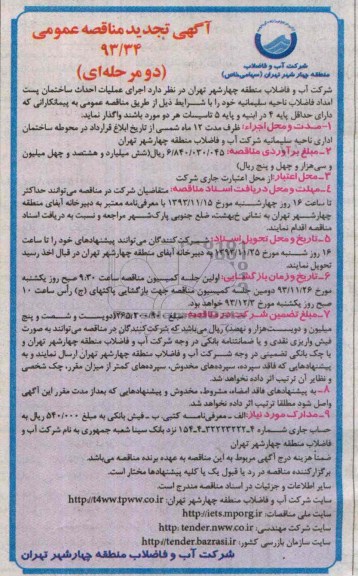 آگهی تجدید مناقصه عمومی
۹۳/۳۴
(دو مرحله‌ای)
شرکت آب و فاضلاب
منطقه چهار شهر تهران (سهامی خاص)
شرکت آب و فاضلاب منطقه چهارشهر تهران در نظر دارد اجرای عملیات احداث ساختمان پست
امداد فاضلاب ناحیه سلیمانیه خود را با شرایط ذیل از طریق مناقصه عمومی به پیمانکارانی که
دارای حداقل پایه ۴ در ابنیه و پایه ۵ تاسیسات هر دو مورد باشند واگذار نماید:
۱-مدت و محل اجراء: ظرف مدت ۱۲ ماه شمسی از تاریخ ابلاغ قرارداد در محوطه ساختمان
اداری ناحیه سلیمانیه شرکت آب و فاضلاب منطقه چهارشهر تهران
۲-مبلغ برآوردی مناقصه: ۶/۸۴۰/۰۳۰/۰۴۵ ریال(شش میلیارد و هشتصد و چهل میلیون
و سی‌هزار و چهل و پنج ریال)
۳-محل اعتبار: از محل اعتبارت جاری شرکت
۴-مهلت و محل دریافت اسناد مناقصه: متقاضیان شرکت در مناقصه می‌توانند حداکثر
تا ساعت ۱۶ روز چهارشنبه مورخ ۱۳۹۳/۱۱/۱۵ با معرفی‌نامه معتبر به دبیرخانه آبفای منطقه
چهارشهر تهران به نشانی خ‌بهشت، ضلع جنوبی پارک‌شهر مراجعه و نسبت به دریافت اسناد
مناقصه اقدام نمایند.
۵-تاریخ و محل تحویل اسناد: شرکت‌کنندگان می‌توانند پیشنهادهای خود را تا ساعت
۱۶ روز شنبه مورخ ۹۳/۱۱/۲۵ به دبیرخانه آبفای منطقه چهارشهر تهران در قبال اخذ رسید
تحویل نمایند.
۶-تاریخ و زمان بازگشایی: اولین جلسه کمیسیون مناقصه ساعت ۹:۳۰ صبح روز یکشنبه
مورخ ۹۳/۱۱/۲۶ دومین جلسه کمیسیون مناقصه جهت بازگشایی پاکتهای (ج) رأس ساعت ۱۰
صبح روز یکشنبه مورخ ۹۳/۱۲/۳ خواهد بود.
۷-مبلغ تضمین شرکت در مناقصه: مبلغ (دویست و شصت و پنج
میلیون و دویست‌هزار و نهصد) ریال می‌باشد که شرکت‌کنندگان در مناقصه می‌توانند به صورت
فیش واریزی نقدی و یا ضمانتنامه بانکی در وجه شرکت آب و فاضلاب منطقه چهارشهر تهران و
یا چک بانکی تضمینی در وجه شرکت آب و فاضلاب منطقه چهارشهر تهران ارسال نمایند و به
پیشنهادهایی که فاقد سپرده، سپرده‌های مخدوش، سپرده‌های کمتر از میزان مقرر، چک شخصی
و نظایر آن ترتیب اثر داده نخواهد شد.
۸-به پیشنهادهای فاقد امضاء، مشروط، مخدوش و پیشنهادهایی که بعداز مدت مقرر این آگهی
واصل شود مطلقا ترتیب اثر داده نخواهد شد.
۹-مدارک مورد نیاز: الف- معرفی‌نامه کتبی ب- فیش بانکی به مبلغ ۵۴۰/۰۰۰ ریال به
حساب جاری شماره نزد بانک سینا شعبه جمهوری به نام شرکت آب و
فاضلاب منطقه چهارشهر تهران
ضمناً هزینه درج آگهی مربوط به این مناقصه به عهده برنده مناقصه می‌باشد.
برگزارکننده مناقصه در رد یا قبول یک یا کلیه پیشنهادها مختار است.
سایر اطلاعات و جزئیات در اسناد مناقصه مندرج است.
سایت شرکت آب و فاضلاب منطقه چهارشهر تهران: http://t4ww.tpww.co.ir
سایت ملی مناقصات: http://iets.mporg.ir
سایت شرکت مهندسی: http://tender.nww.co.ir
سایت سازمان بازرسی کشور: http://tender.bazrasi.ir
شرکت آب و فاضلاب منطقه چهارشهر تهران